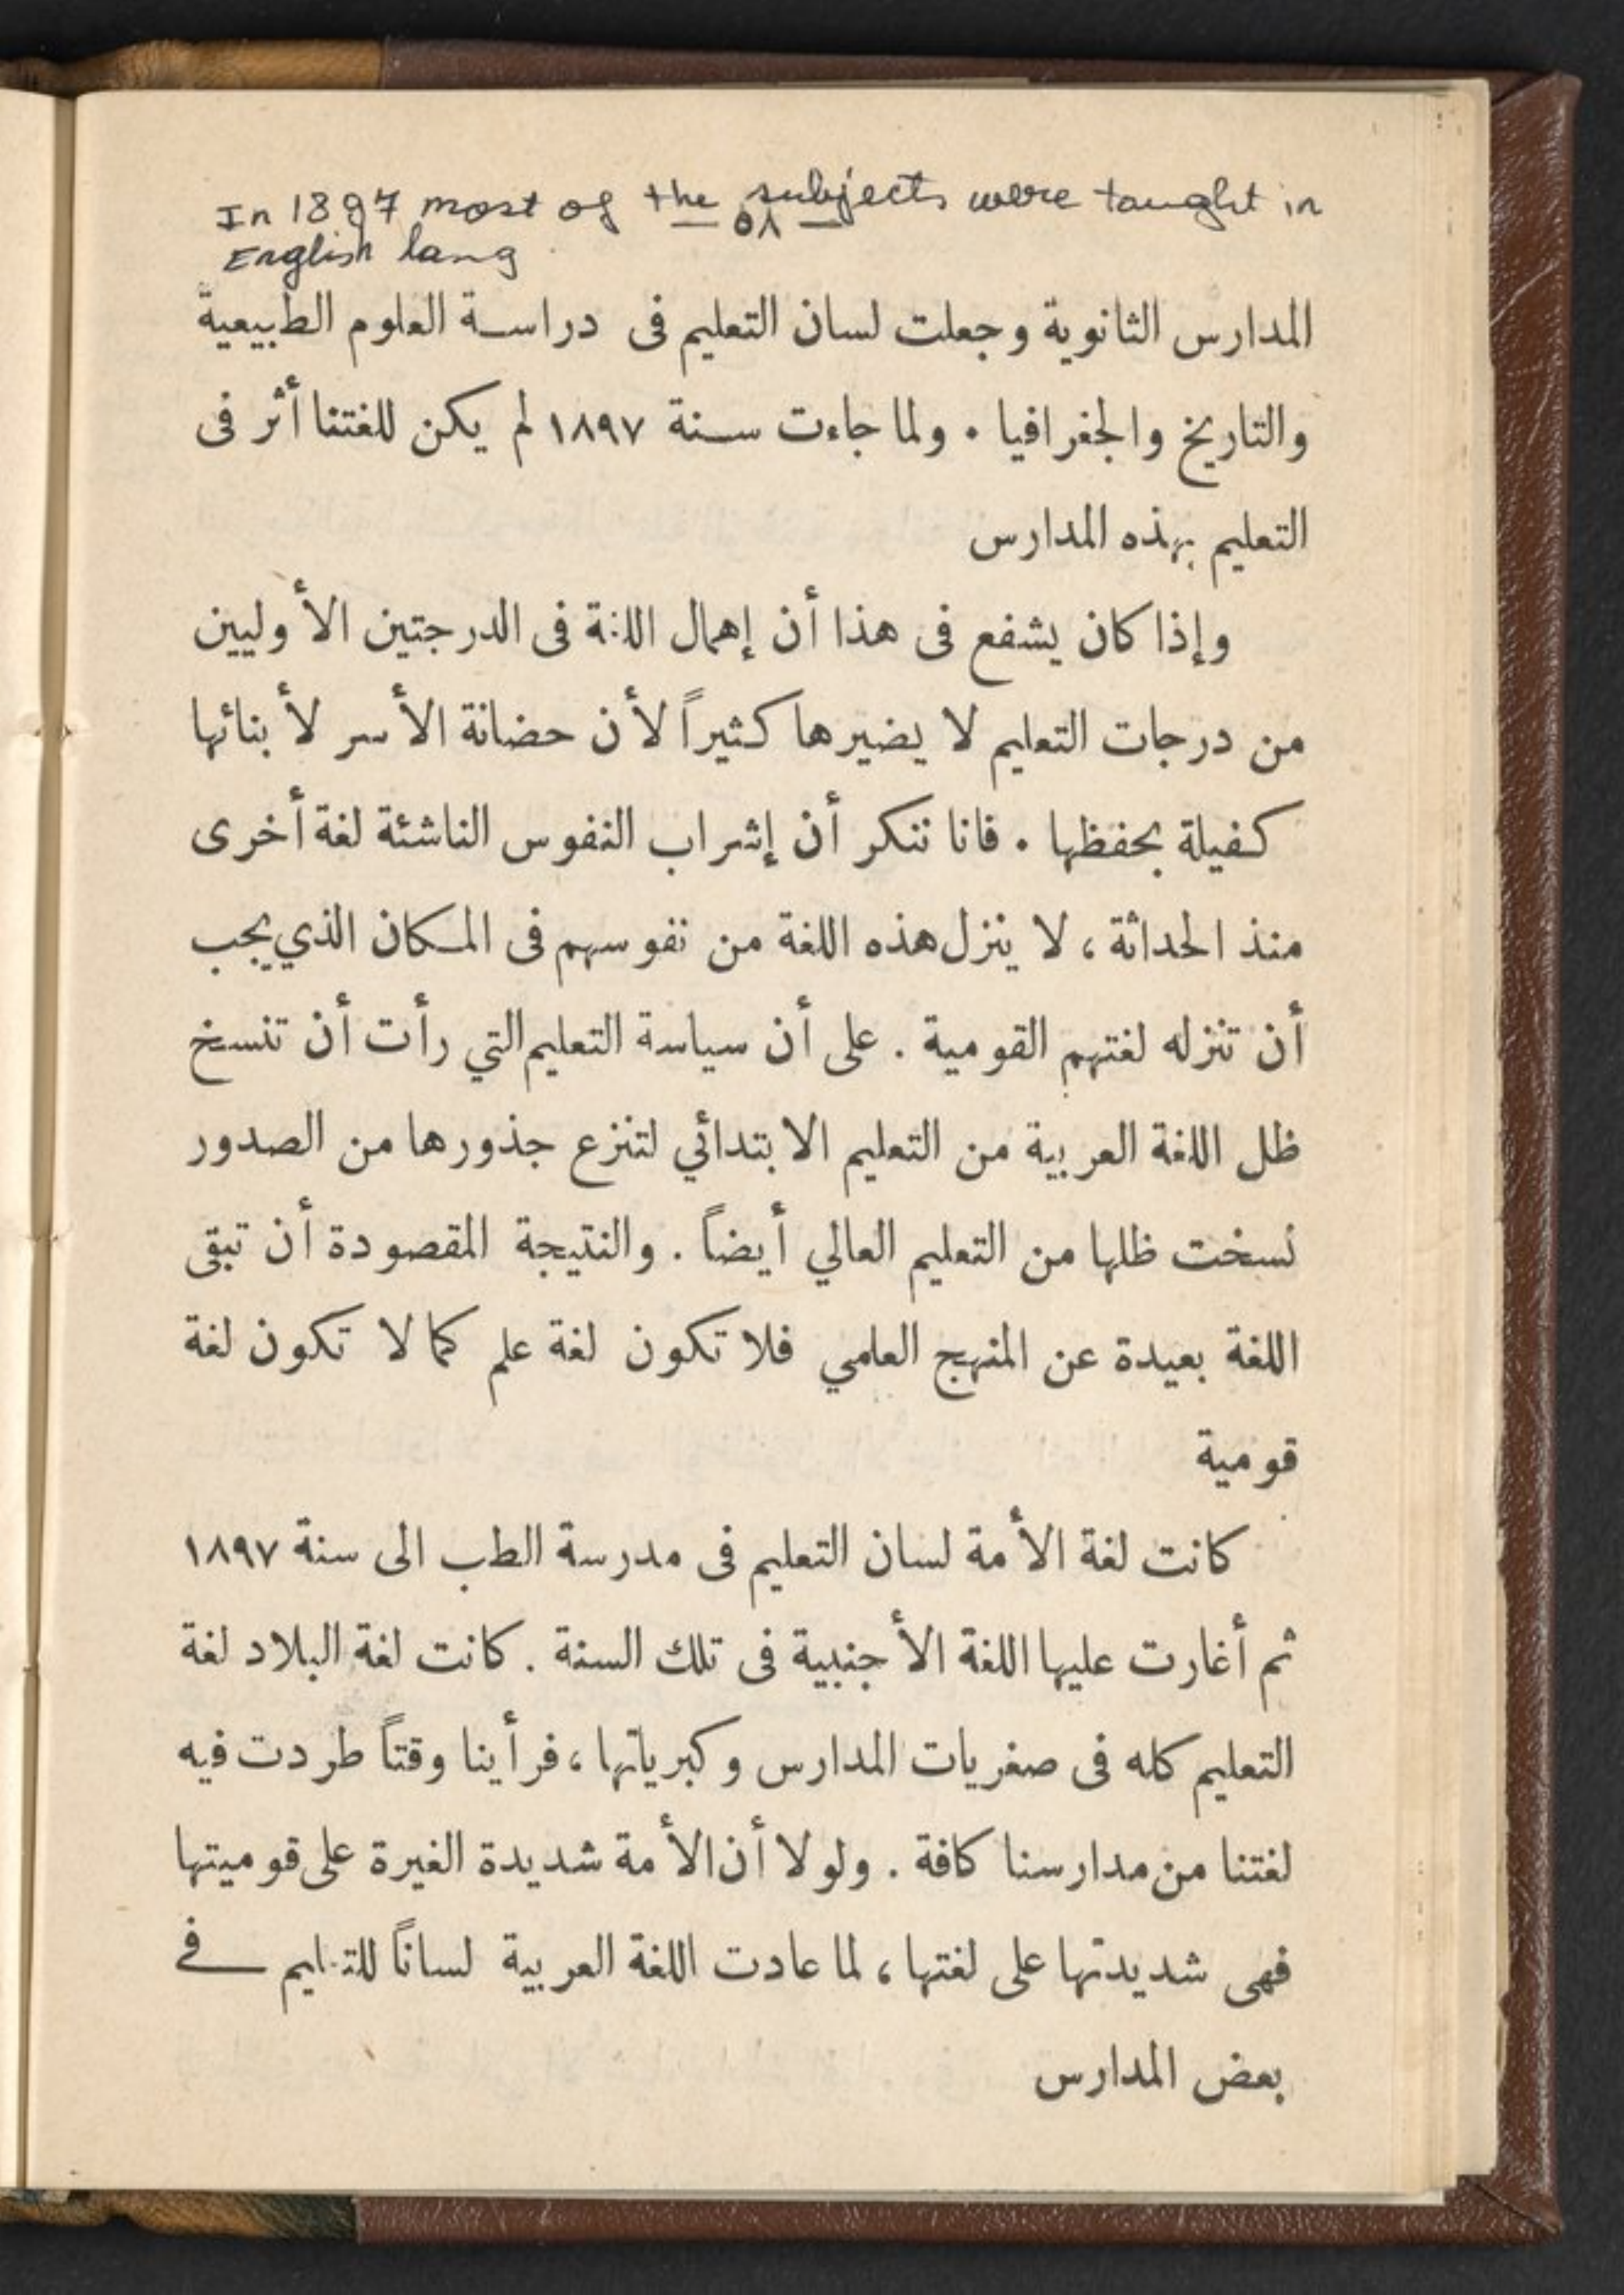 In 1897 most of the subjects were taught in
English lang
— ٥٨ —
المدارس الثانوية وجعلت لسان التعليم فى دراسة العلوم الطبيعية
والتاريخ والجغرافيا . ولما جاءت سنة ١٨٩٧ لم يكن للغتنا أثر فى
التعليم بهذه المدارس
وإذا كان يشفع فى هذا أن إهمال اللغة فى الدرجتين الأوليين
من درجات التعليم لا يضيرها كثيراً لأن حضانة الأسر لأبنائها
كفيلة بحفظها . فانا ننكر أن إشراب النفوس الناشئة لغة أخرى
منذ الحداثة ، لا ينزل هذه اللغة من نفوسهم فى المكان الذي يجب
أن تنزله لغتهم القومية . على أن سياسة التعليم التي رأت أن تنسخ
ظل اللغة العربية من التعليم الابتدائي لتنزع جذورها من الصدور
نسخت ظلها من التعليم العالي أيضاً . والنتيجة المقصودة أن تبقى
اللغة بعيدة عن المنهج العلمي فلا تكون لغة علم كما لا تكون لغة
قومية
كانت لغة الأمة لسان التعليم فى مدرسة الطب الى سنة ١٨٩٧
ثم أغارت عليها اللغة الأجنبية فى تلك السنة . كانت لغة البلاد لغة
التعليم كله فى صغريات المدارس وكبرياتها ، فرأينا وقتاً طردت فيه
لغتنا من مدارسنا كافة . ولولا أن الأمة شديدة الغيرة على قوميتها
فهى شديدتها على لغتها ، لما عادت اللغة العربية لساناً للتعليم فى
بعض المدارس